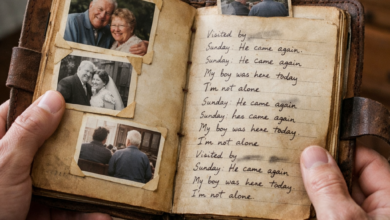 Visited by
Sunday: He came again.
Sunday: He came again
My boy was here today
I'm not alone
Sunday: He came again
Sunday: has came again
My boy was here today
I'm not alone.
Visited by
Sunday: He came again
My boy was here today
I'm not alone